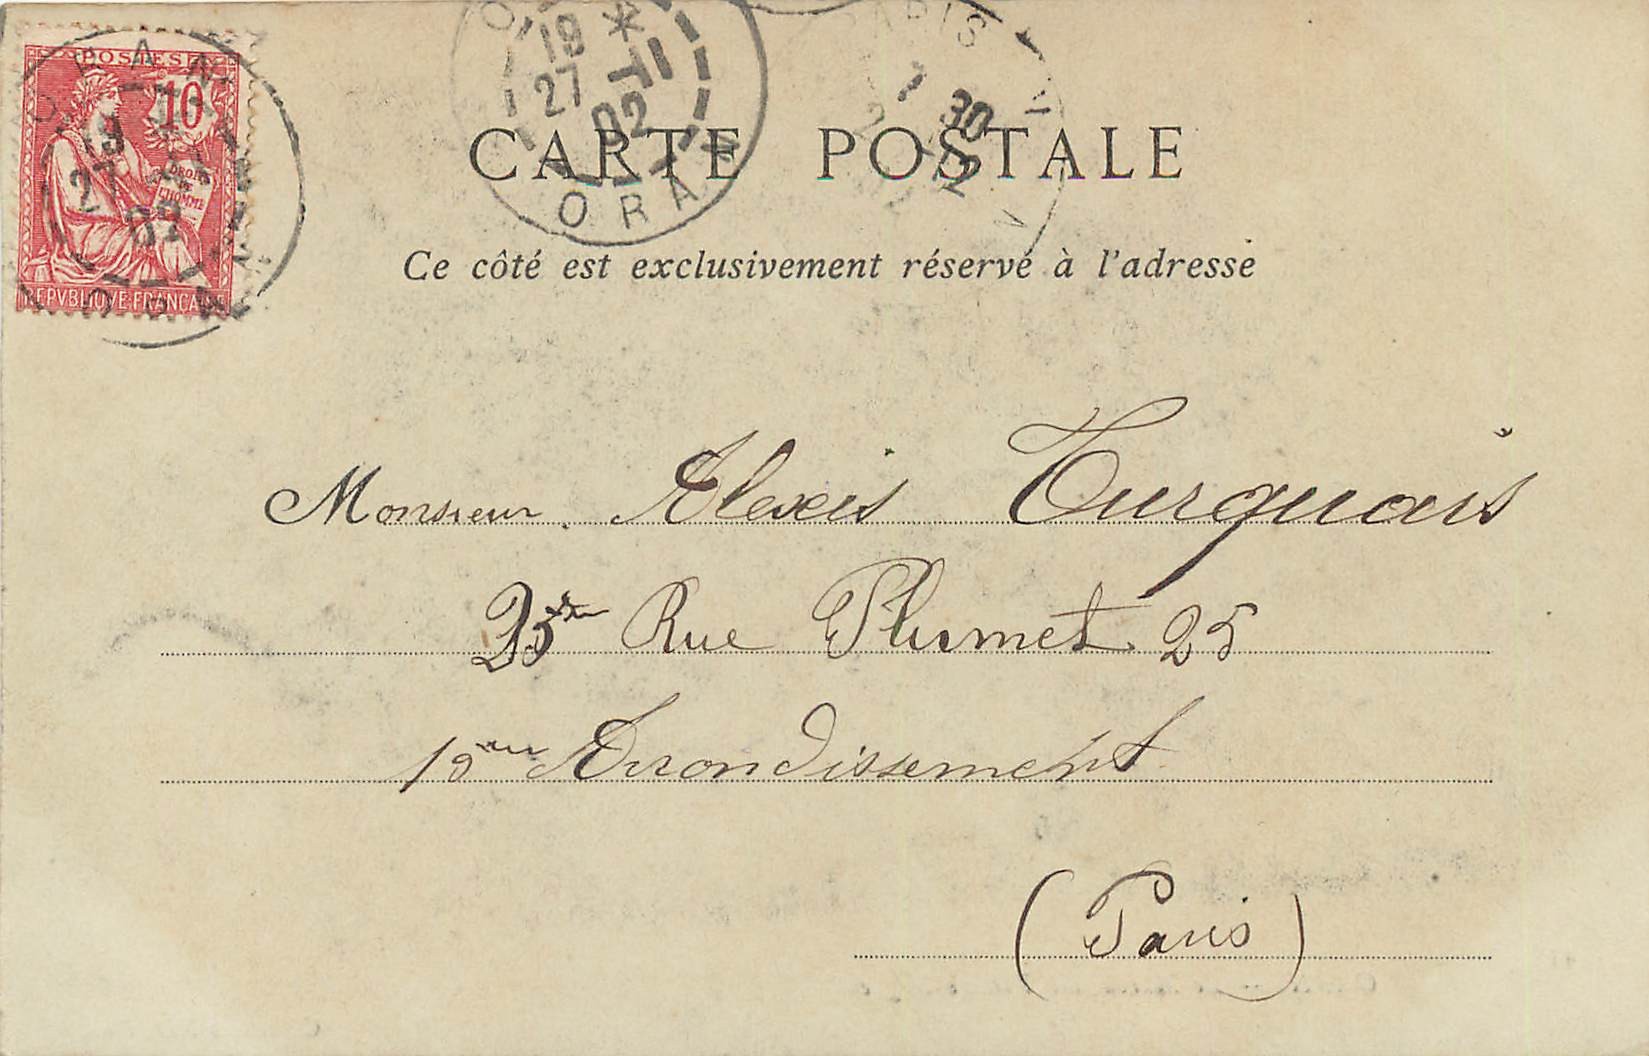 POSTES
10
DROITS
DE
L'HOMME
REPVBLIQVE FRANCAI
ORAN
19
27
02
ORAN
19 *
27 -11
02
ORAN
PARIS
7 30
2 -12
CARTE POSTALE
Ce côté est exclusivement réservé à l'adresse
Monsieur Alexis Turquais
25 Rue Plumet 25
15me Arrondissement
(Paris)